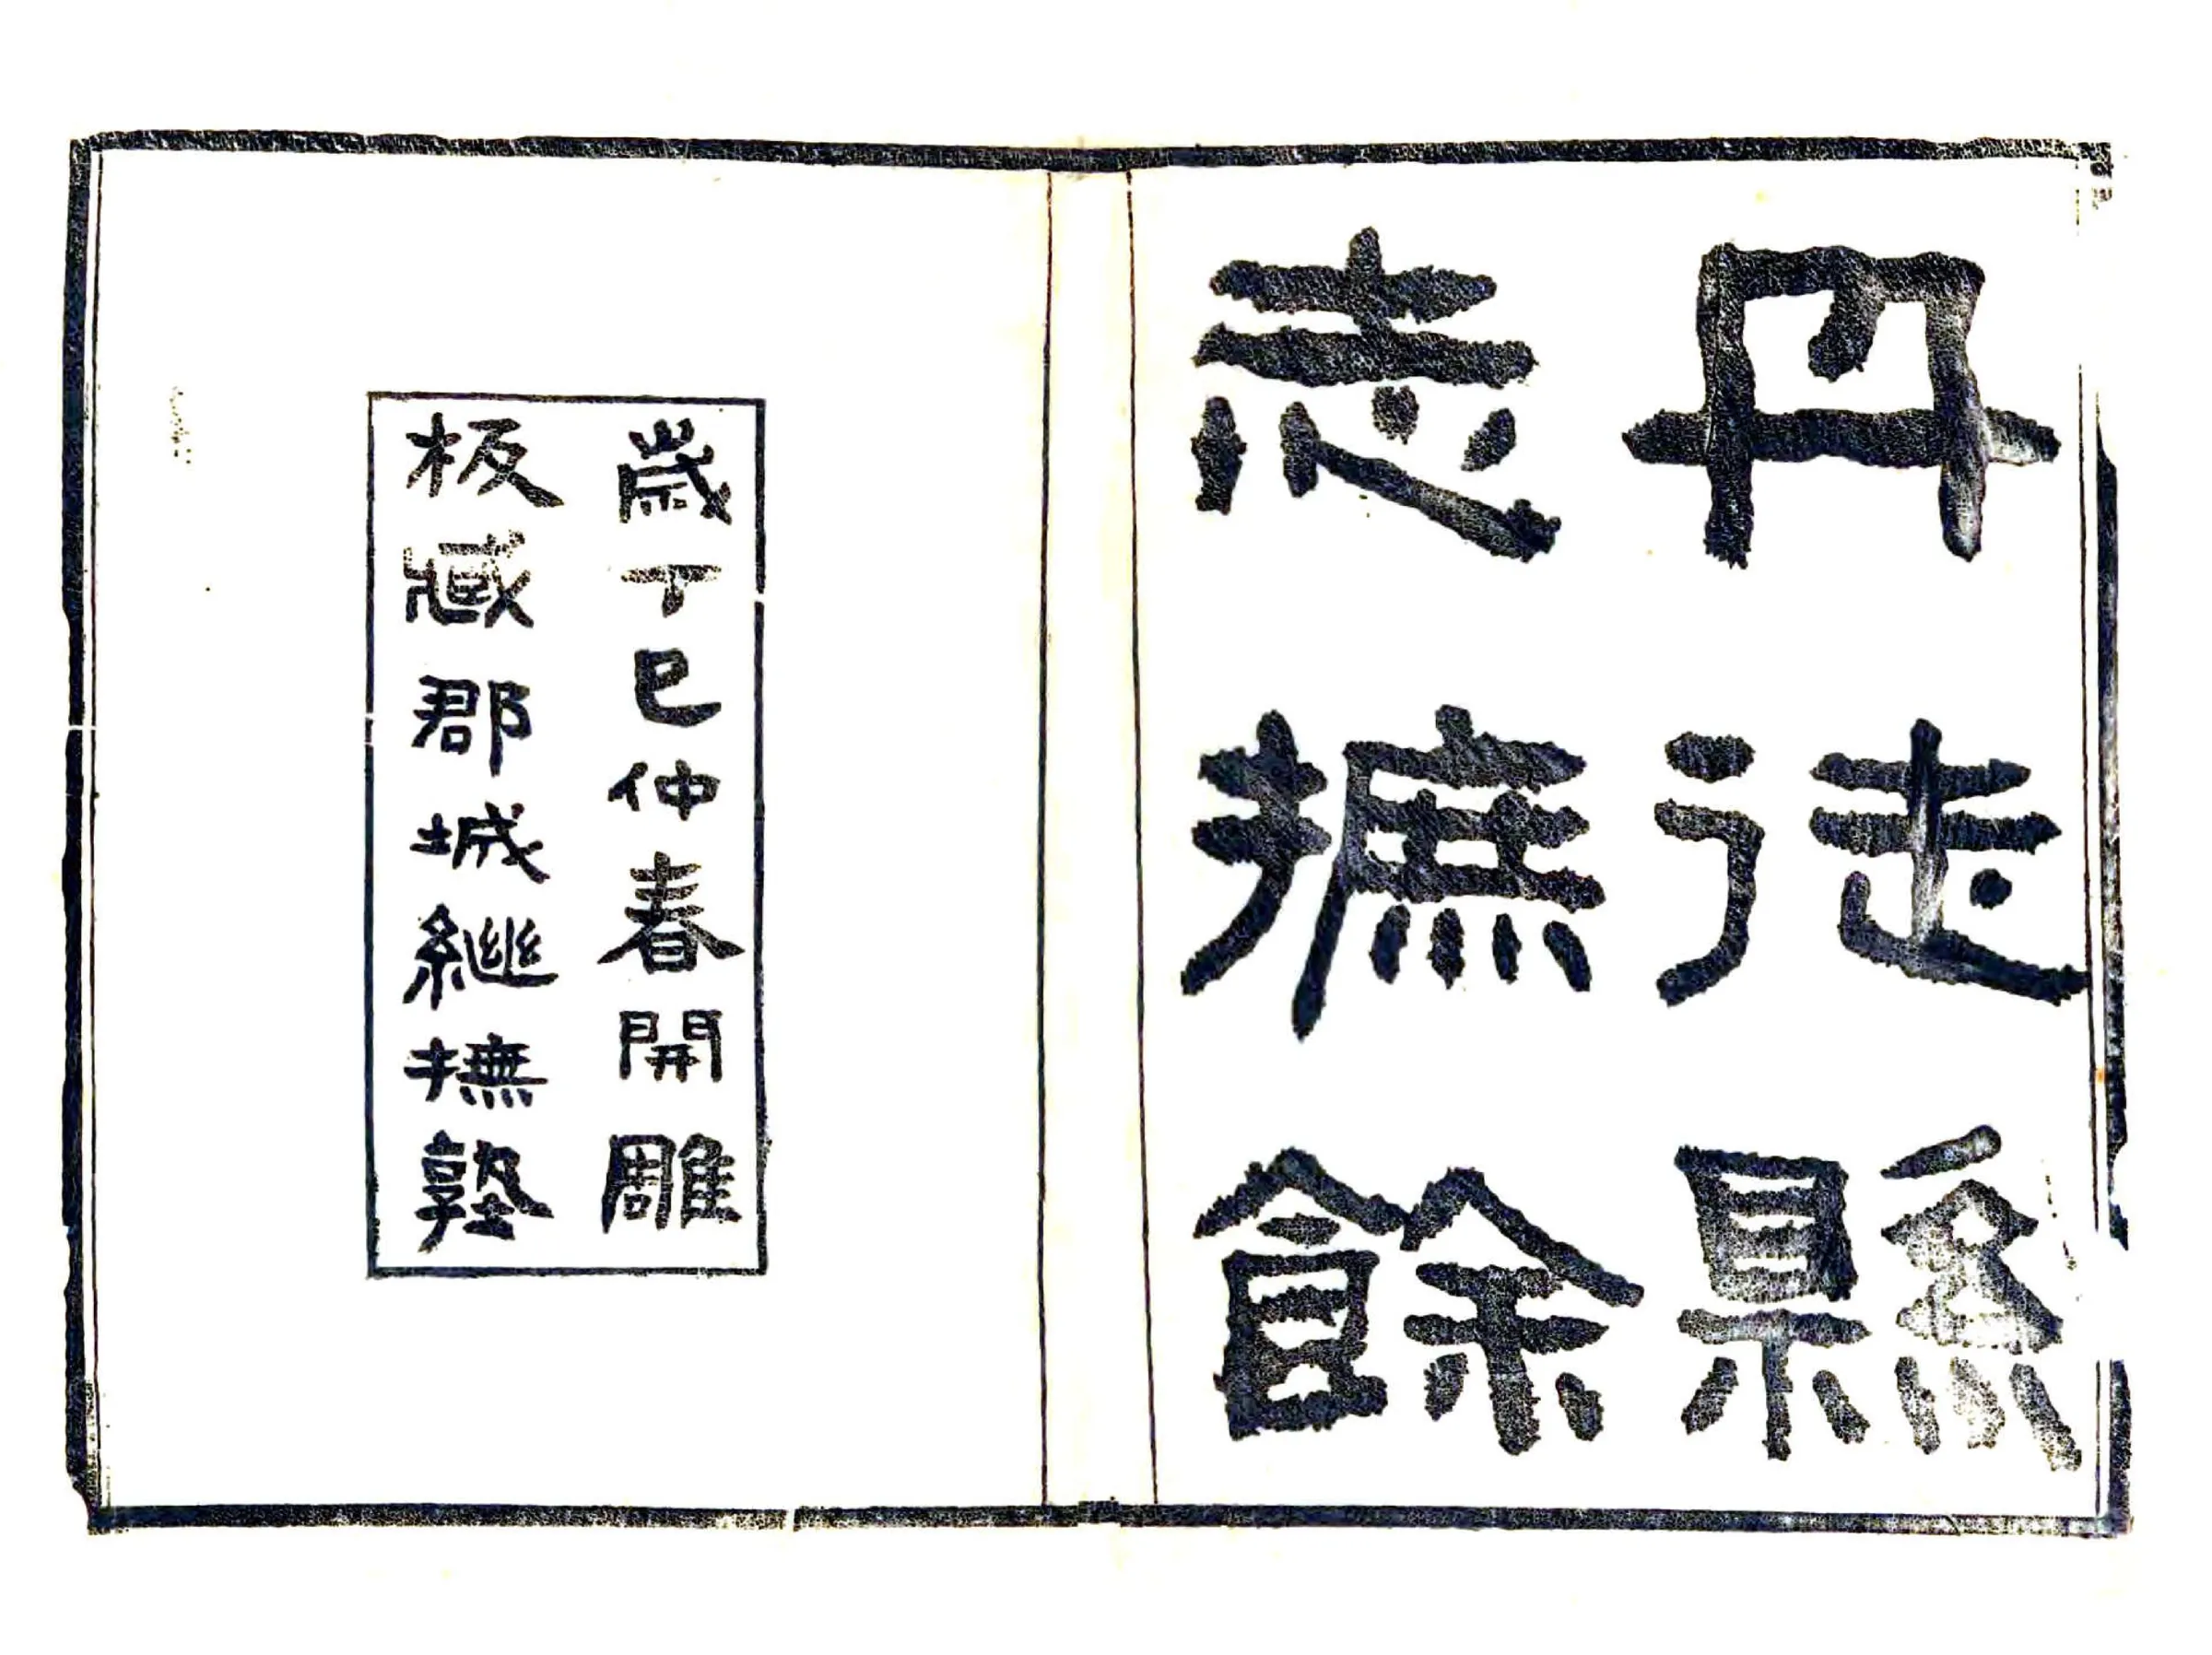 丹徒縣
志摭餘
歲丁巳仲春開雕
板藏郡城繼撫塾